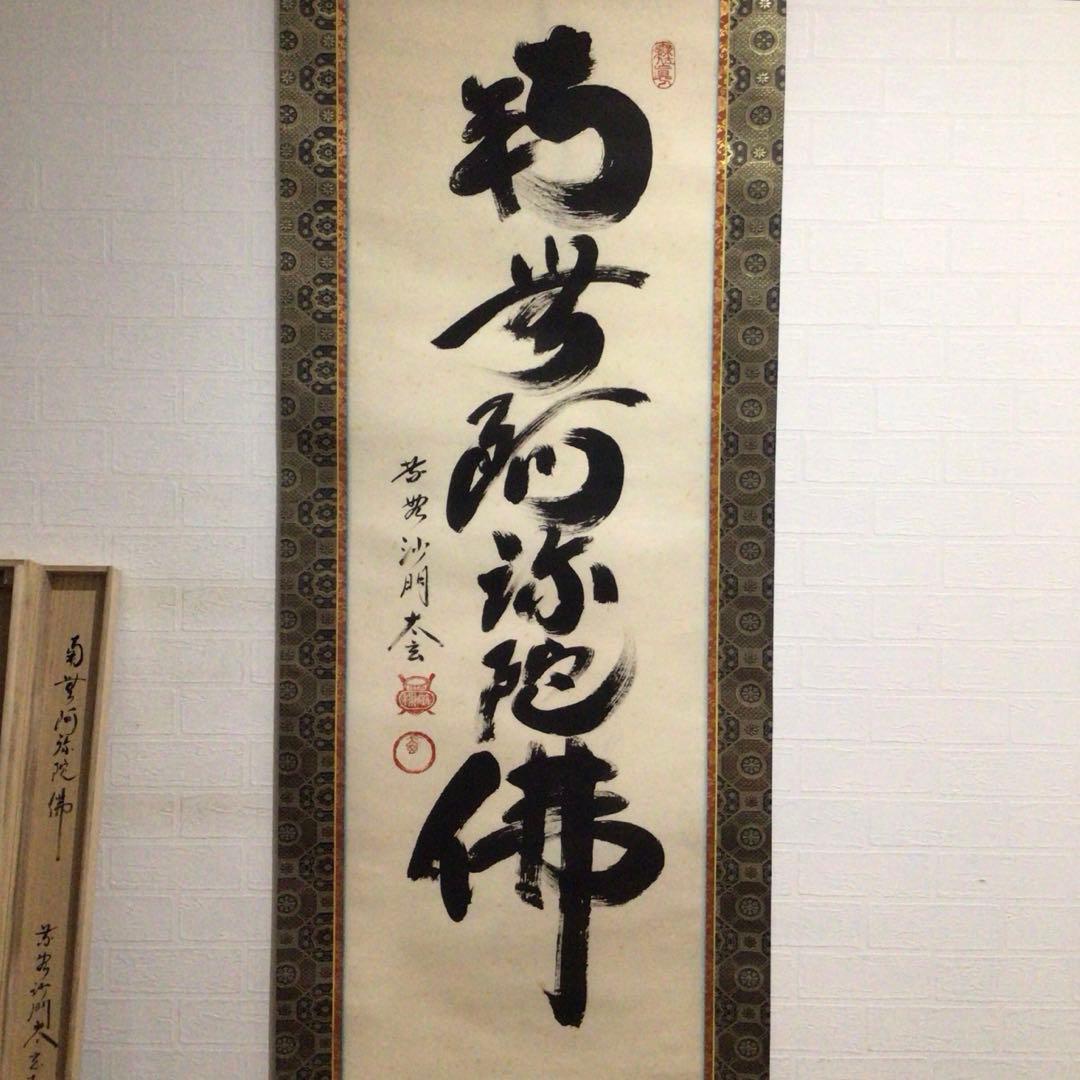 南無阿弥陀佛
沙門太玄
南無阿弥陀佛
沙門太玄